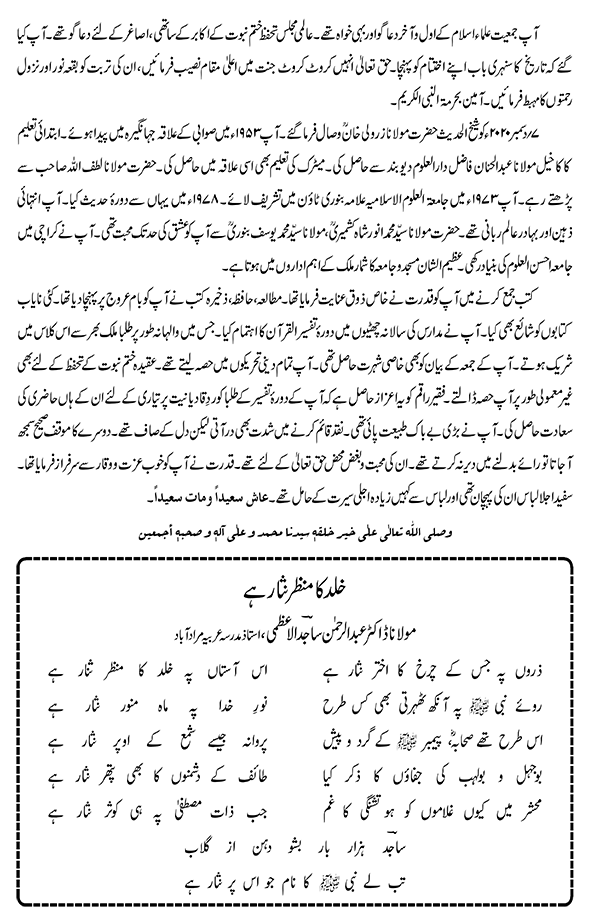 آپ جمعیت علماء اسلام کے اول و آخر دعا گو اور بہی خواہ تھے۔ عالمی مجلس تحفظ ختم نبوت کے اکابر کے ساتھی، اصاغر کے لئے دعا گو تھے۔ آپ کیا
گئے کہ تاریخ کا سنہری باب اپنے اختتام کو پہنچا۔ حق تعالیٰ انہیں کروٹ کروٹ جنت میں اعلیٰ مقام نصیب فرمائیں، ان کی تربت کو بقعہ نور اور نزول
رحمتوں کا مہبط فرمائیں۔ آمین بحرمۃ النبی الکریم۔
۷؍دسمبر ۲۰۲۰ء کو شیخ الحدیث حضرت مولانا زرولی خانؒ وصال فرما گئے۔ آپ ۱۹۵۳ء میں صوابی کے علاقہ جہانگیرہ میں پیدا ہوئے۔ ابتدائی تعلیم
کاکاخیل مولانا عبدالحنان فاضل دارالعلوم دیوبند سے حاصل کی۔ میٹرک کی تعلیم بھی اسی علاقہ میں حاصل کی۔ حضرت مولانا لطف اللہ صاحب سے
پڑھتے رہے۔ آپ ۱۹۷۳ء میں جامعۃ العلوم الاسلامیہ علامہ بنوری ٹاؤن میں تشریف لائے۔ ۱۹۷۸ء میں یہاں سے دورۂ حدیث کیا۔ آپ انتہائی
ذہین اور بہادر عالم ربانی تھے۔ حضرت مولانا سید محمد انور شاہ کشمیریؒ، مولانا سید محمد یوسف بنوریؒ سے آپ کو عشق کی حد تک محبت تھی۔ آپ نے کراچی میں
جامعہ احسن العلوم کی بنیاد رکھی۔ عظیم الشان مسجد و جامعہ کا شمار ملک کے اہم اداروں میں ہوتا ہے۔
کتب جمع کرنے میں آپ کو قدرت نے خاص ذوق عنایت فرمایا تھا۔ مطالعہ، حافظہ، ذخیرہ کتب نے آپ کو بام عروج پر پہنچا دیا تھا۔ کئی نایاب
کتابوں کو شائع بھی کیا۔ آپ نے مدارس کی سالانہ چھٹیوں میں دورۂ تفسیر القرآن کا اہتمام کیا۔ جس میں والہانہ طور پر طلبا ملک بھر سے اس کلاس میں
شریک ہوتے۔ آپ کے جمعہ کے بیان کو بھی خاصی شہرت حاصل تھی۔ آپ تمام دینی تحریکوں میں حصہ لیتے تھے۔ عقیدہ ختم نبوت کے تحفظ کے لئے بھی
غیر معمولی طور پر آپ حصہ ڈالتے۔ فقیر راقم کو یہ اعزاز حاصل ہے کہ آپ کے دورۂ تفسیر کے طلبا کو رد قادیانیت پر تیاری کے لئے ان کے ہاں حاضری کی
سعادت حاصل کی۔ آپ نے بڑی بے باک طبیعت پائی تھی۔ نقد قائم کرنے میں شدت بھی در آتی لیکن دل کے صاف تھے۔ دوسرے کا موقف صحیح سمجھ
آ جاتا تو رائے بدلنے میں دیر نہ کرتے تھے۔ ان کی محبت و بغض محض حق تعالیٰ کے لئے تھے۔ قدرت نے آپ کو خوب عزت و وقار سے سرفراز فرمایا تھا۔
سفید اجلا لباس ان کی پہچان تھی اور لباس سے کہیں زیادہ اجلی سیرت کے حامل تھے۔ عاش سعیداً ومات سعیداً۔
وصلی اللہ تعالی علی خیر خلقہ سیدنا محمد و علی آلہ و صحبہ أجمعین
خلد کا منظر نثار ہے
مولانا ڈاکٹر عبدالرحمٰن ساجد الاعظمی، استاذ مدرسہ عربیہ مرادآباد
ذروں پہ جس کے چرخ کا اختر نثار ہے اس آستاں پہ خلد کا منظر نثار ہے
روئے نبی ﷺ پہ آنکھ ٹھہرتی بھی کس طرح نور خدا پہ ماہ منور نثار ہے
اس طرح تھے صحابہؓ، پیمبر ﷺ کے گرد و پیش پروانہ جیسے شمع کے اوپر نثار ہے
بوجہل و بولہب کی جفاؤں کا ذکر کیا طائف کے دشمنوں کا بھی پتھر نثار ہے
محشر میں کیوں غلاموں کو ہو تشنگی کا غم جب ذات مصطفیٰ پہ ہی کوثر نثار ہے
ساجد ہزار بار بشو دہن از گلاب
تب لے نبی ﷺ کا نام جو اس پر نثار ہے